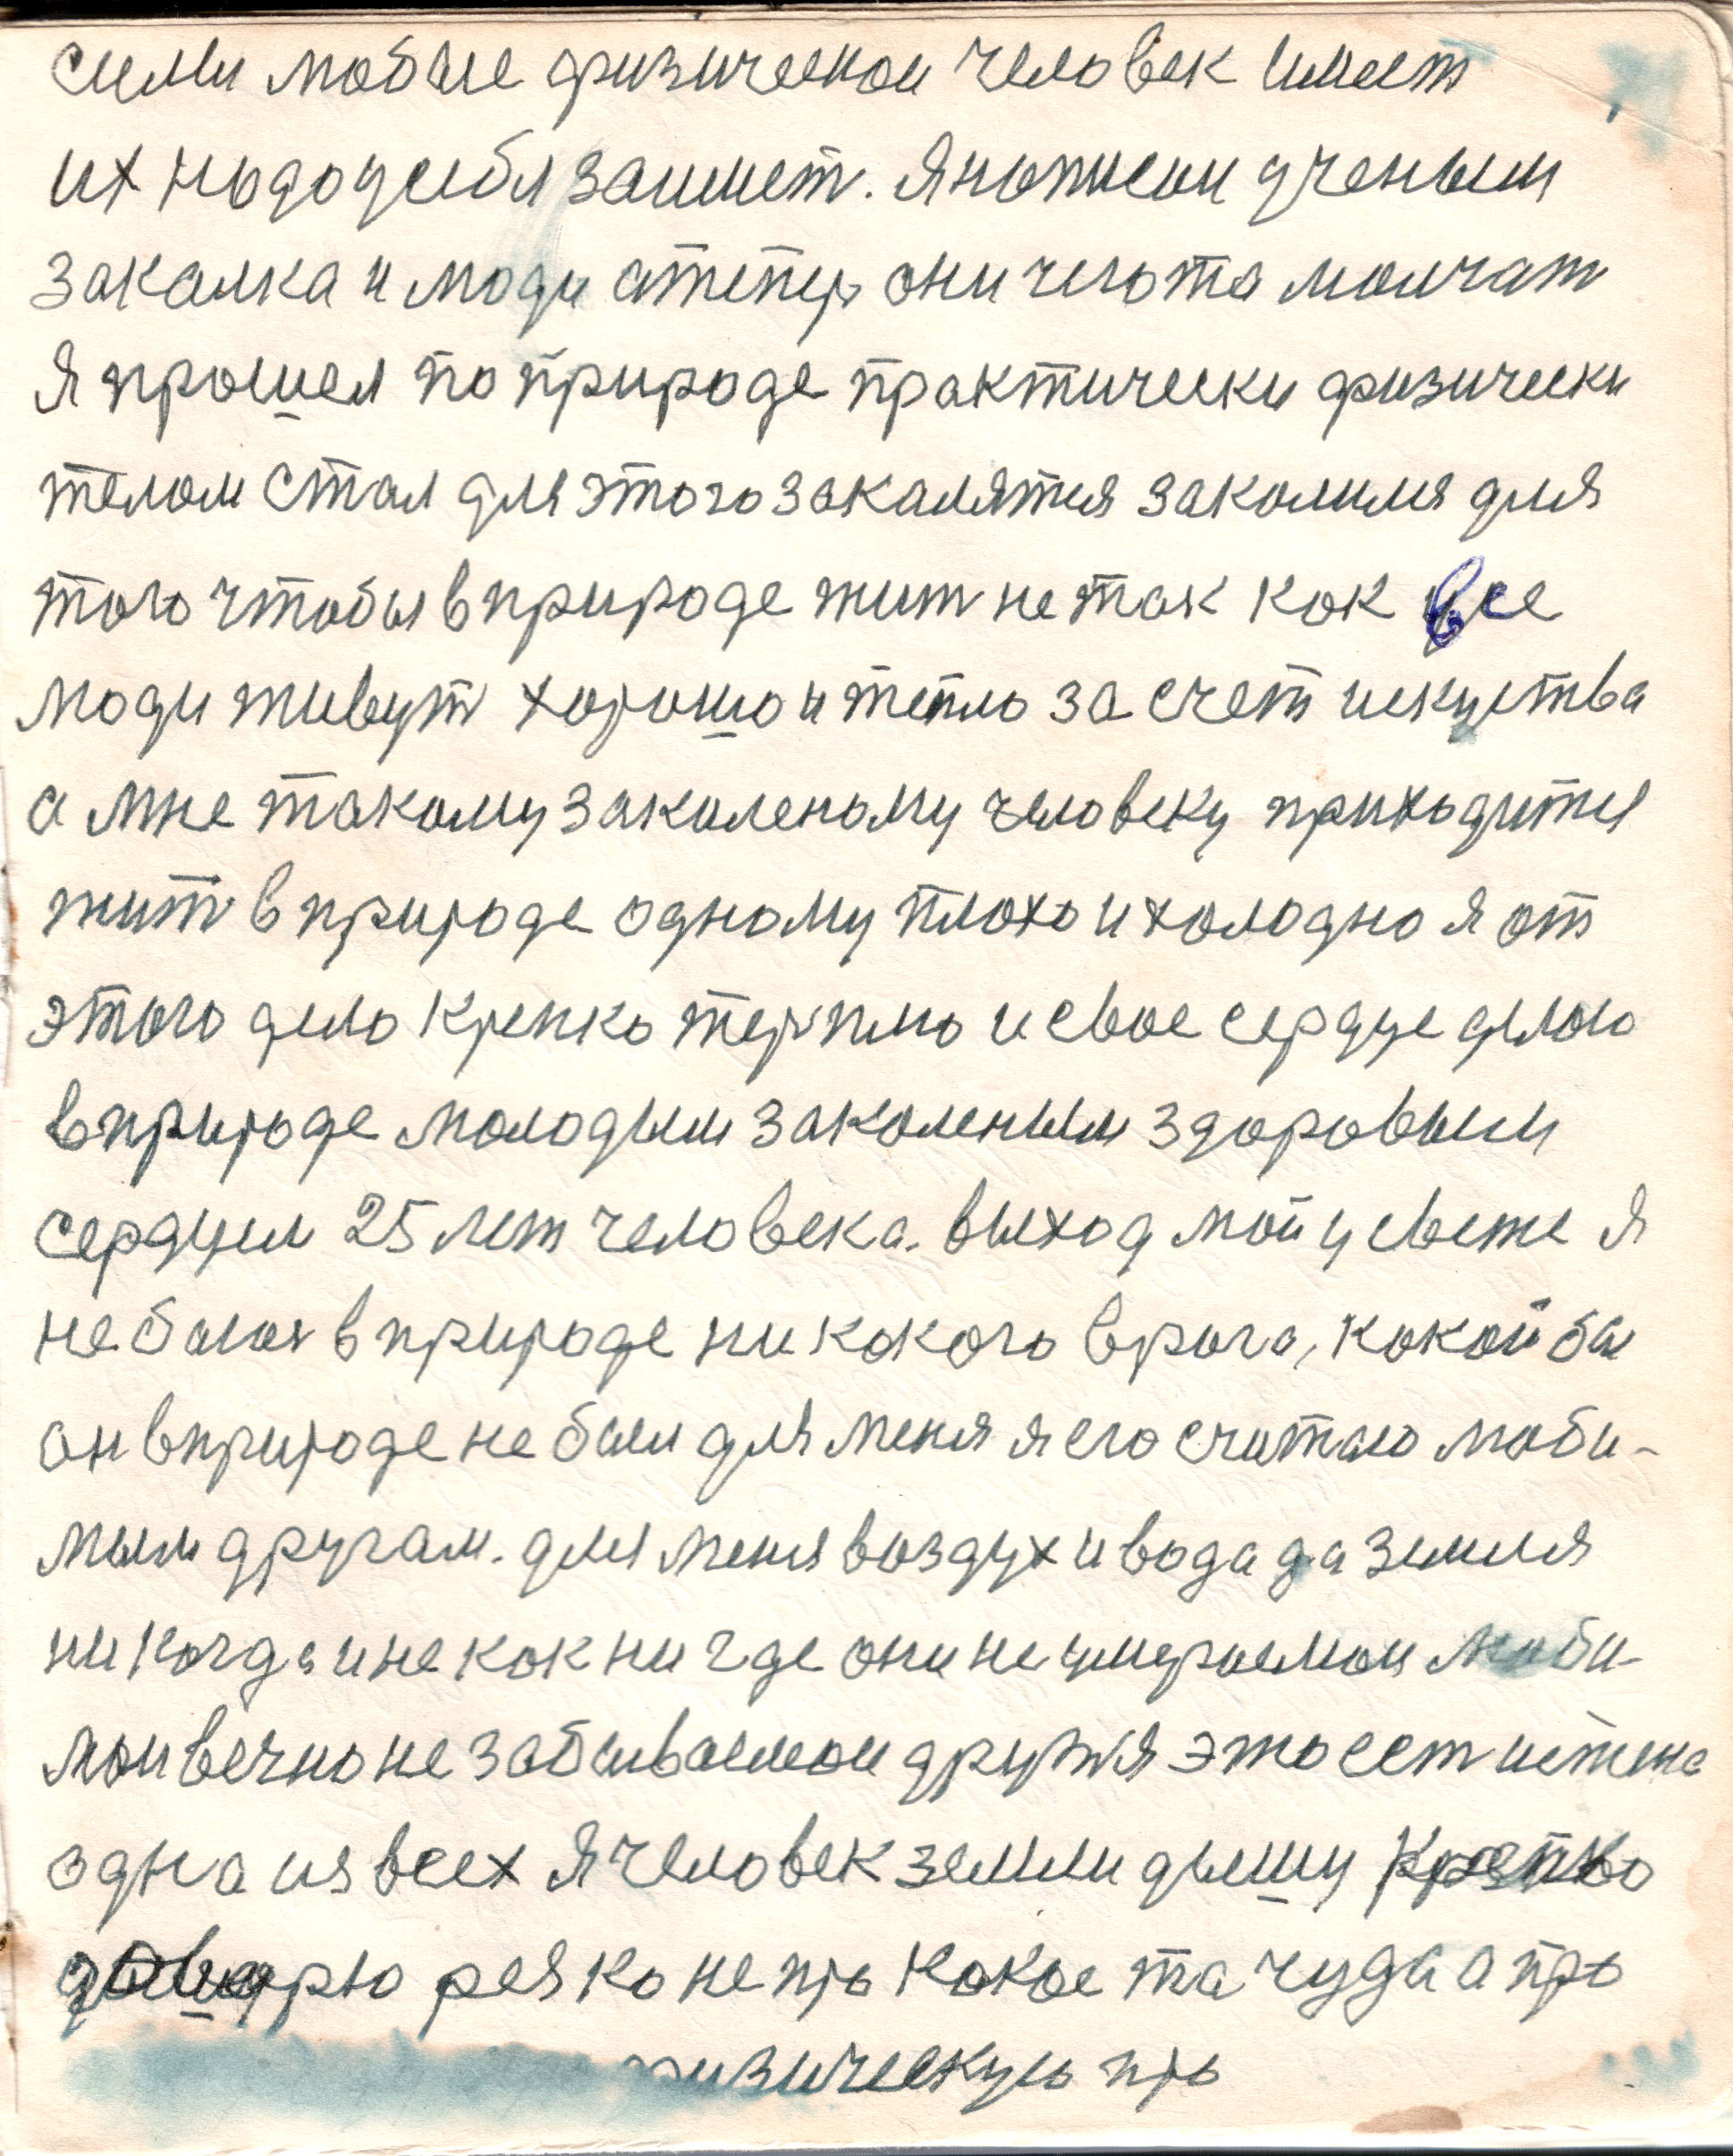 силы любые физическои человек имеет
их надо у себя займет. Я написал ученым
закалка и люди атепер они чегота молчат
Я прошел по природе практически физически
телом стал для этого закалятся закалился для
того чтобы в природе жит не так как все
люди живут хорошо и тепло за счет искуства
а мне такому закаленому человеку приходится
жит в природе одному плохо и холодно я от
этого дело крепко терплю и свое сердце делаю
в природе молодым закаленым здоровым
сердцем 25 лет человека. выход мой у свете я
не боюся в природе ни какого врага, какой бы
он в природе не был для меня я его считаю люби-
мым другам. для меня воздух и вода да земля
ни когда и не как ни где они не умираемои люби-
мои вечно не забываемои друзья это ест истена
одна из всех Я человек земли дышу крепко
говорю резко не про какое та чуда а про
физическую про